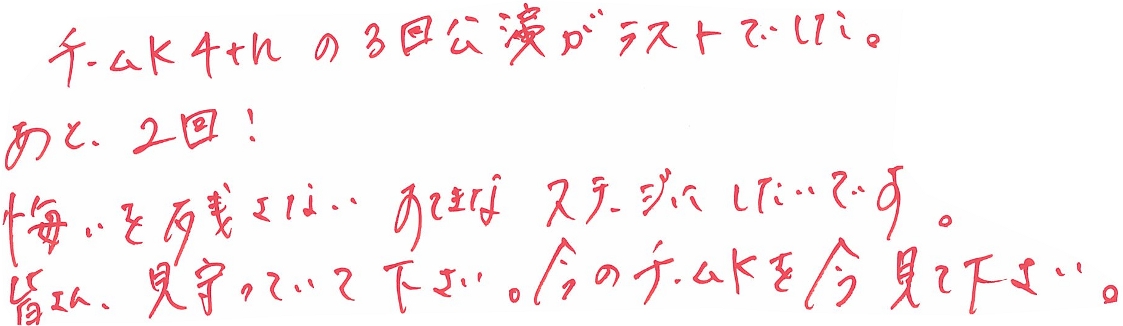 チームK 4thの3回公演がラストでした。
あと、2回!
悔いを残さない すてきな ステージに したいです。
皆さん、見守っていて下さい。今のチームKを今見て下さい。